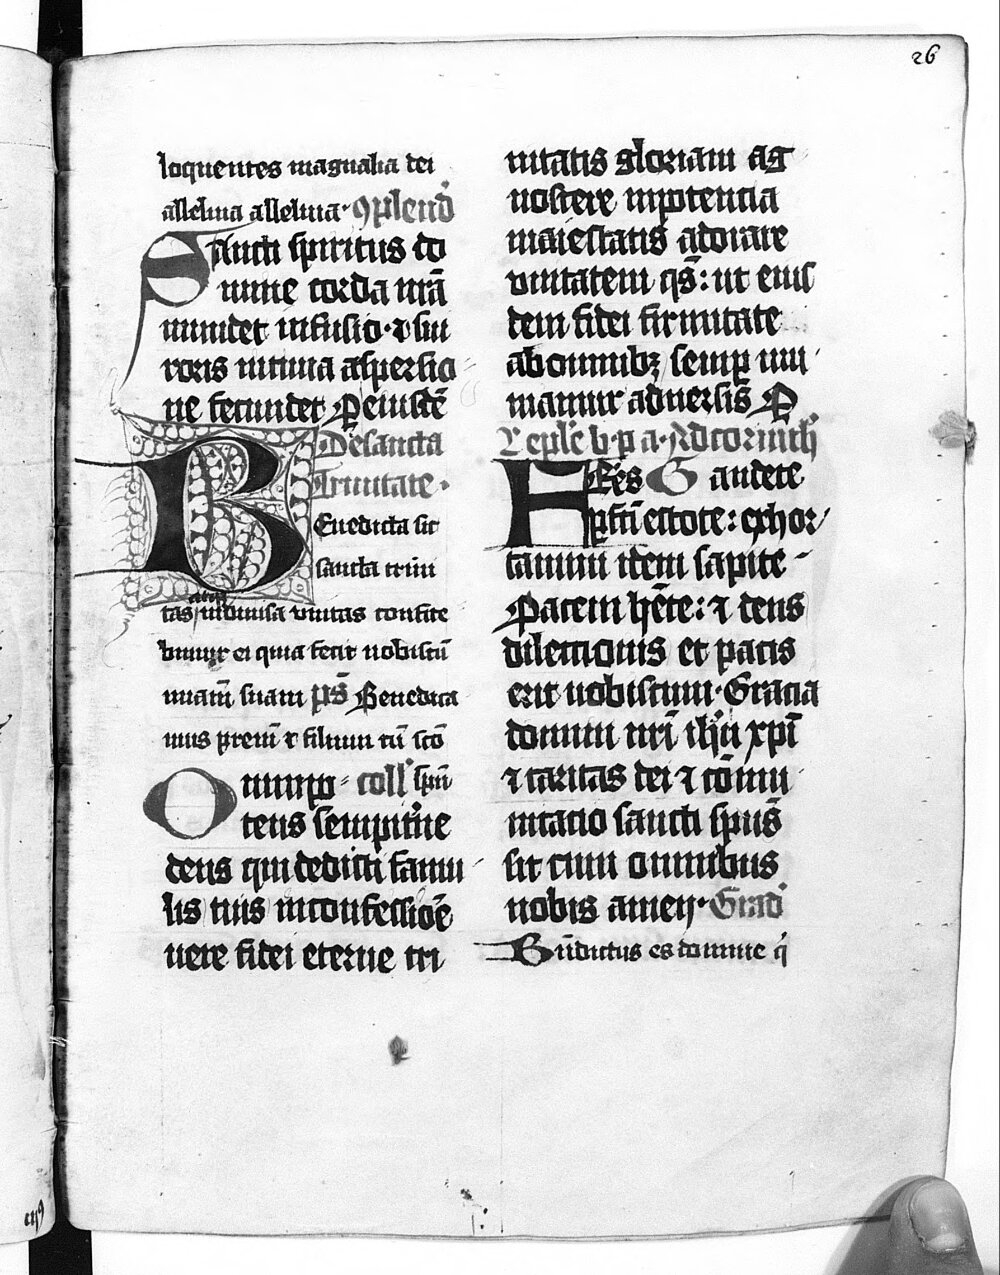 26
loquentes magnalia dei
alleluia alleluia · ꝯplend̉
Sancti spiritus do
mine corda nr̄a
mundet infusio · ⁊ sui
roris intima aspersio
ne fecundet P eiusdē
De sancta
Trinitate ·
Benedicta sit
sancta trini
tas atqꝫ indiuisa vnitas confite
bimur ei quia fecit nobiscū
miam̄ suam ps̄ Benedica
mus prem̄ ⁊ filium cū sc̄o
Omnip = coll̉ spū
tens sempitͥne
deus qui dedisti famu
lis tuis in confessiōe
uere fidei eterne tri
nitatis gloriam ag
noscere in potencia
maiestatis adorare
vnitatem qs̄: ut eius
dem fidei firmitate
ab omnibꝫ semp mu
niamur aduersis P
ep̄le b · p a · Ad corinth̉
FRēs Gaudete
pfc̄i estote: exhor
tamini idem sapite -
Pacem hēte: ⁊ deus
dilectionis et pacis
erit uobiscum · Gracia
domini nr̄i ih̄u xp̄i
⁊ caritas dei ⁊ cōmu
nicatio sancti spūs
sit cum omnibus
uobis amen · Grad̉
Bn̄dictus es domine q̇